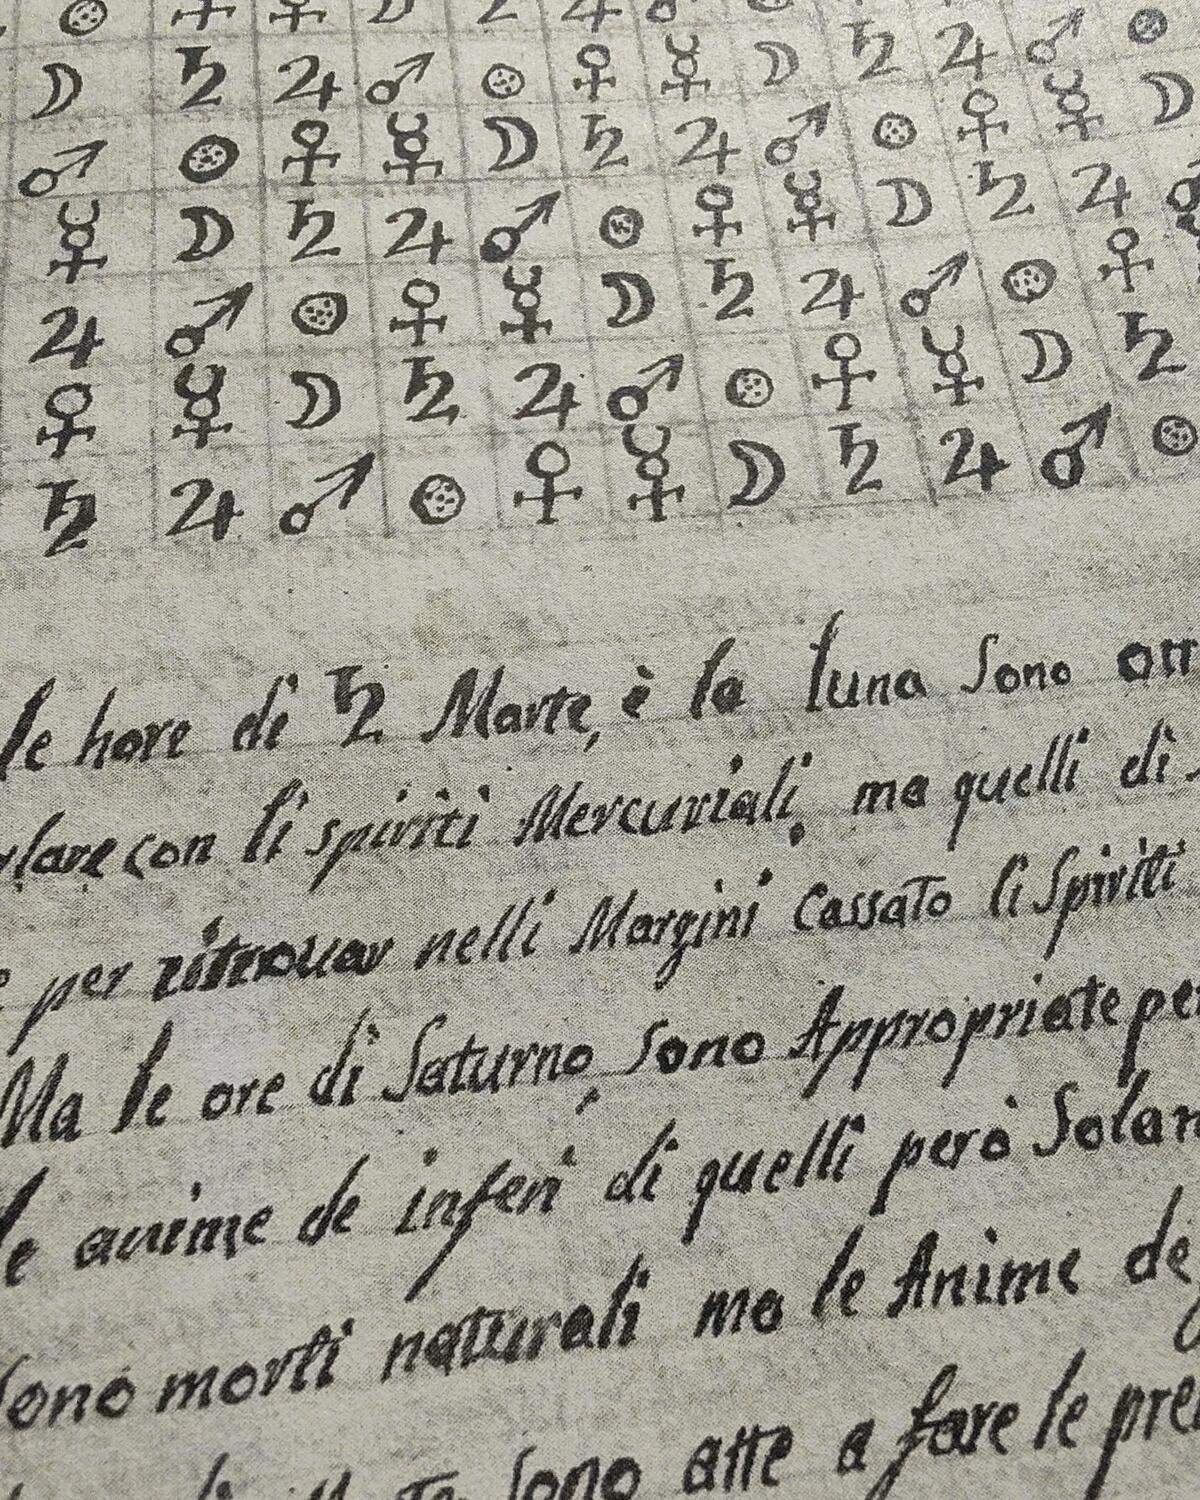 ☉ ♀ ☿ ☽ ♄ ♃ ♂
☽ ♄ ♃ ♂ ☉ ♀ ☿ ☽ ♄ ♃ ♂ ☉
♂ ☉ ♀ ☿ ☽ ♄ ♃ ♂ ☉ ♀ ☿ ☽
☿ ☽ ♄ ♃ ♂ ☉ ♀ ☿ ☽ ♄ ♃ ♂
♃ ♂ ☉ ♀ ☿ ☽ ♄ ♃ ♂ ☉ ♀
♀ ☿ ☽ ♄ ♃ ♂ ☉ ♀ ☿ ☽ ♄
♄ ♃ ♂ ☉ ♀ ☿ ☽ ♄ ♃ ♂ ☉
le hore di ♄ Marte, è la luna sono
con li spiriti Mercuriali, ma quelli di
per ritrouar nelli Margini Cassato li Spiriti
Ma le ore di Saturno, sono Appropriate
le anime de inferi di quelli però
sono morti naturali ma le Anime
sono atte a fare le